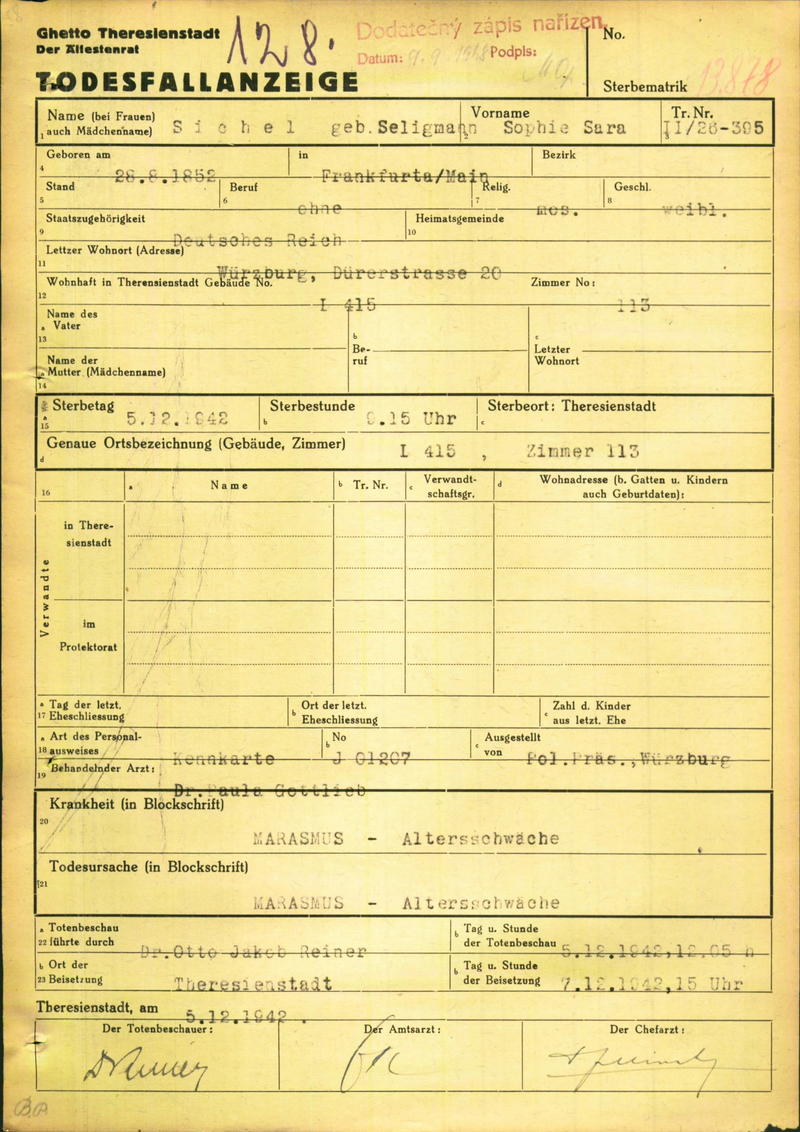 Ghetto Theresienstadt
Der Ältestenrat
128.
Dodatečný zápis nařízen.
Datum: Podpis:
No.
TODESFALLANZEIGE
Sterbematrik
Name (bei Frauen) Vorname Tr. Nr.
1 auch Mädchenname) Sichel geb. Seligmann 2 Sophie Sara 3 II/26-305
Geboren am in Bezirk
4 28.8.1852 Frankfurta/Main
Stand Beruf Relig. Geschl.
5 6 ohne 7 mos. 8 weibl.
Staatszugehörigkeit Heimatsgemeinde
9 Deutsches Reich 10
Lettzer Wohnort (Adresse)
11 Würzburg, Dürerstrasse 20
Wohnhaft in Theresienstadt Gebäude No. Zimmer No:
12 I 415 113
Name des
a Vater
13
b Be-
ruf
c Letzter
Wohnort
Name der
a Mutter (Mädchenname)
14
a Sterbetag Sterbestunde Sterbeort: Theresienstadt
15 5.12.1942 b .15 Uhr c
Genaue Ortsbezeichnung (Gebäude, Zimmer)
d I 415 , Zimmer 113
16 a Name b Tr. Nr. c Verwandt-
schaftsgr. d Wohnadresse (b. Gatten u. Kindern
auch Geburtdaten):
Verwandte
in There-
sienstadt
im
Protektorat
a Tag der letzt. Ort der letzt. Zahl d. Kinder
17 Eheschliessung b Eheschliessung c aus letzt. Ehe
a Art des Personal- No Ausgestellt
18 ausweises Kennkarte b J 01207 c von Pol.Präs.,Würzburg
19 Behandelnder Arzt: Dr.Paula Gottlieb
Krankheit (in Blockschrift)
20 MARASMUS - Altersschwäche
Todesursache (in Blockschrift)
21 MARASMUS - Altersschwäche
a Totenbeschau b Tag u. Stunde
22 führte durch Dr.Otto Jakob Reiner der Totenbeschau 5.12.1942,12.05 h
b Ort der b Tag u. Stunde
23 Beisetzung Theresienstadt der Beisetzung 7.12.1942,15 Uhr
Theresienstadt, am 5.12.1942.
Der Totenbeschauer: Der Amtsarzt: Der Chefarzt: